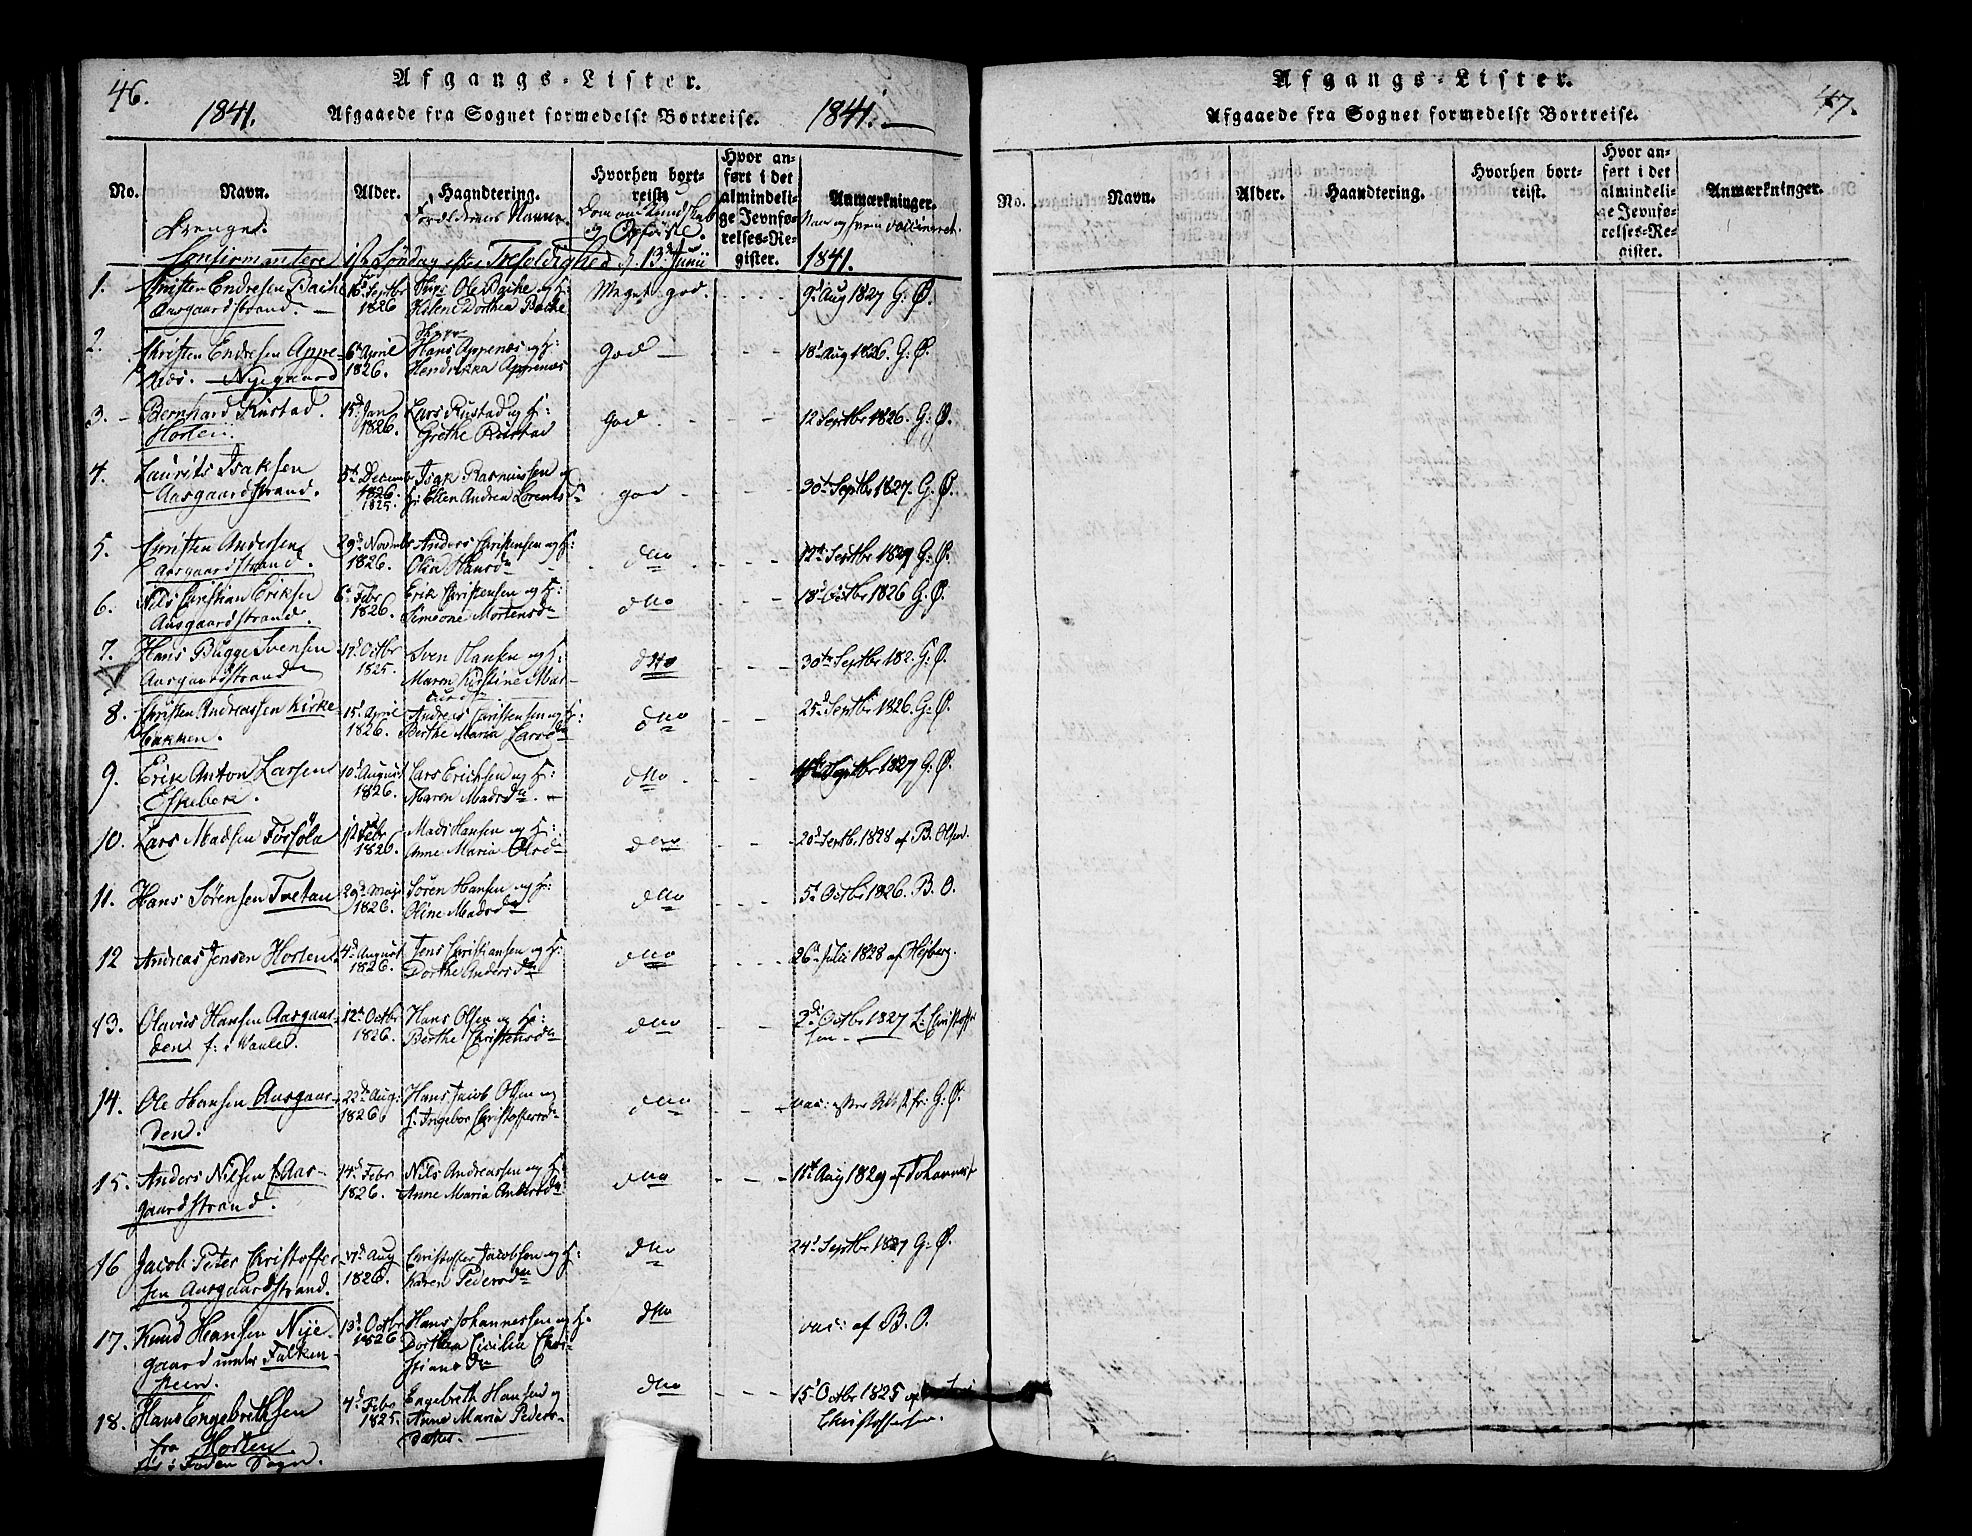 46.
Afgangs-Lister.
1841.
Afgaaede fra Sognet formedelst Bortreise.
1841.
No.
Navn.
Alder.
Haandtering.
Hvorhen bort-
reist.
Hvor an-
ført i det
almindeli-
ge Jevnfø-
relses-Re-
gister.
Anmærkninger.
Drenge.
Forældrenes Navne.
Dom om Kundskab
og Opførsel.
Naar og hvem vaccineret.
Confirmantere 1st Søndag efter Trefoldighed d. 13d Junii
1841.
1.
Christen Endresen Bache
Aasgaardstrand.
16d Septbr
1826
Ole Bache og H:
Helene Dorthea Bache
Meget god.
9d Aug 1827 G. Ø.
2.
Christen Endresen Appe-
næs. Nyegaard
6d April
1826.
Hans Appenæs og H:
Hendrikka Appenæs
God
18d Aug 1826. G. Ø.
3.
Bernhard Rustad.
Horten.
15d Jan
1826.
Lars Rustad og H:
Grethe Rustad
God.
12 Septbr 1826. G: Ø.
4.
Laurits Isaksen
Aasgaardstrand.
5te December
1826.
1825.
Isak Rasmussen og
H: Ellen Andrea Lorentsd
god
30te Septbr 1827. G. Ø.
5.
Christen Andersen
Aasgaardstrand.
29d Novembr
1826.
Anders Christensen og H:
Olia Hansd
dto
12te Septbr 1829 G: Ø.
6.
Nils Christian Eriksen
Aasgaardstrand.
6te Febr
1826.
Erik Christensen og H:
Simeone Mortensd
dto
18d Octbr 1826 G. Ø.
7.
Hans Bugge Svensen
Aasgaardstrand
17d Octbr
1825.
Sven Hansen og H:
Maren Kirstine Mar-
dto
30te Septbr 182. G. Ø.
8.
Christen Andreassen Kirke-
bakken.
15d April
1826.
Andreas Christensen og H:
Berthe Maria Larsd
dto
25d Septbr 1826. G. Ø.
9.
Erik Anton Larsen
Eskebek.
10d August
1826.
Lars Erichsen og H:
Maren Madsd
dto
Septbr 1827 G. Ø.
10.
Lars Madsen Forsøla
Febr
1826.
Mads Hansen og H:
Anne Maria Olsd
dto
20d Septb. 1828 af B. Olsen.
11.
Hans Sørensen Tvetan
29d Maj
1826.
Søren Hansen og H:
Oline Madsd
dto
5d Octbr 1826. B. O.
12
Andreas Jensen Horten
4d August
1826.
Jens Christiansen og H:
Dorthe Andersd
dto
26d Julii 1828 af Højberg.
13.
Olavus Hansen Aasgaar-
den f: i Vaale.
12te Octbr
1826.
Hans Olsen og H:
Berthe Christensd
dto
2d Octbr 1827 L. Christoffer
sen.
14.
Ole Hansen Aasgaar-
den.
22de Aug:
1826.
Hans Jacob Olsen og
H. Ingebor Christoffersd
dto
vac: efter Att fr: G: Ø.
15.
Anders Nilsen f: Aas-
gaardstrand.
14d Febr
1826.
Nils Andreassen og H:
Anne Maria Andersd
dto
11te Aug 1829 af Johannes
16
Jacob Peter Christoffer-
sen Aasgaardstrand.
7d Aug
1826.
Christoffer Jacobsen og H:
Karen Pedersd
dto
24d Septbr 1827 G. Ø.
17.
Knud Hansen Nye-
gaard under Falken-
steen.
13d Octbr
1826
Hans Johannessen og H.
Dorthea Cicilia Chri-
stiansd
dto
vac: af B. O.
18.
Hans Engebrethsen
fra Horten
i Foden Sogn.
7d Febr
1825.
Engebreth Hansen og
Anne Maria Peders-
datter.
dto
15d Octbr 1825 af
Christoffersen.
Afgangs-Lister.
47.
Afgaaede fra Sognet formedelst Bortreise.
No.
Navn.
Alder.
Haandtering.
Hvorhen bort-
reist.
Hvor an-
ført i det
almindeli-
ge Jevnfø-
relses-Re-
gister.
Anmærkninger.